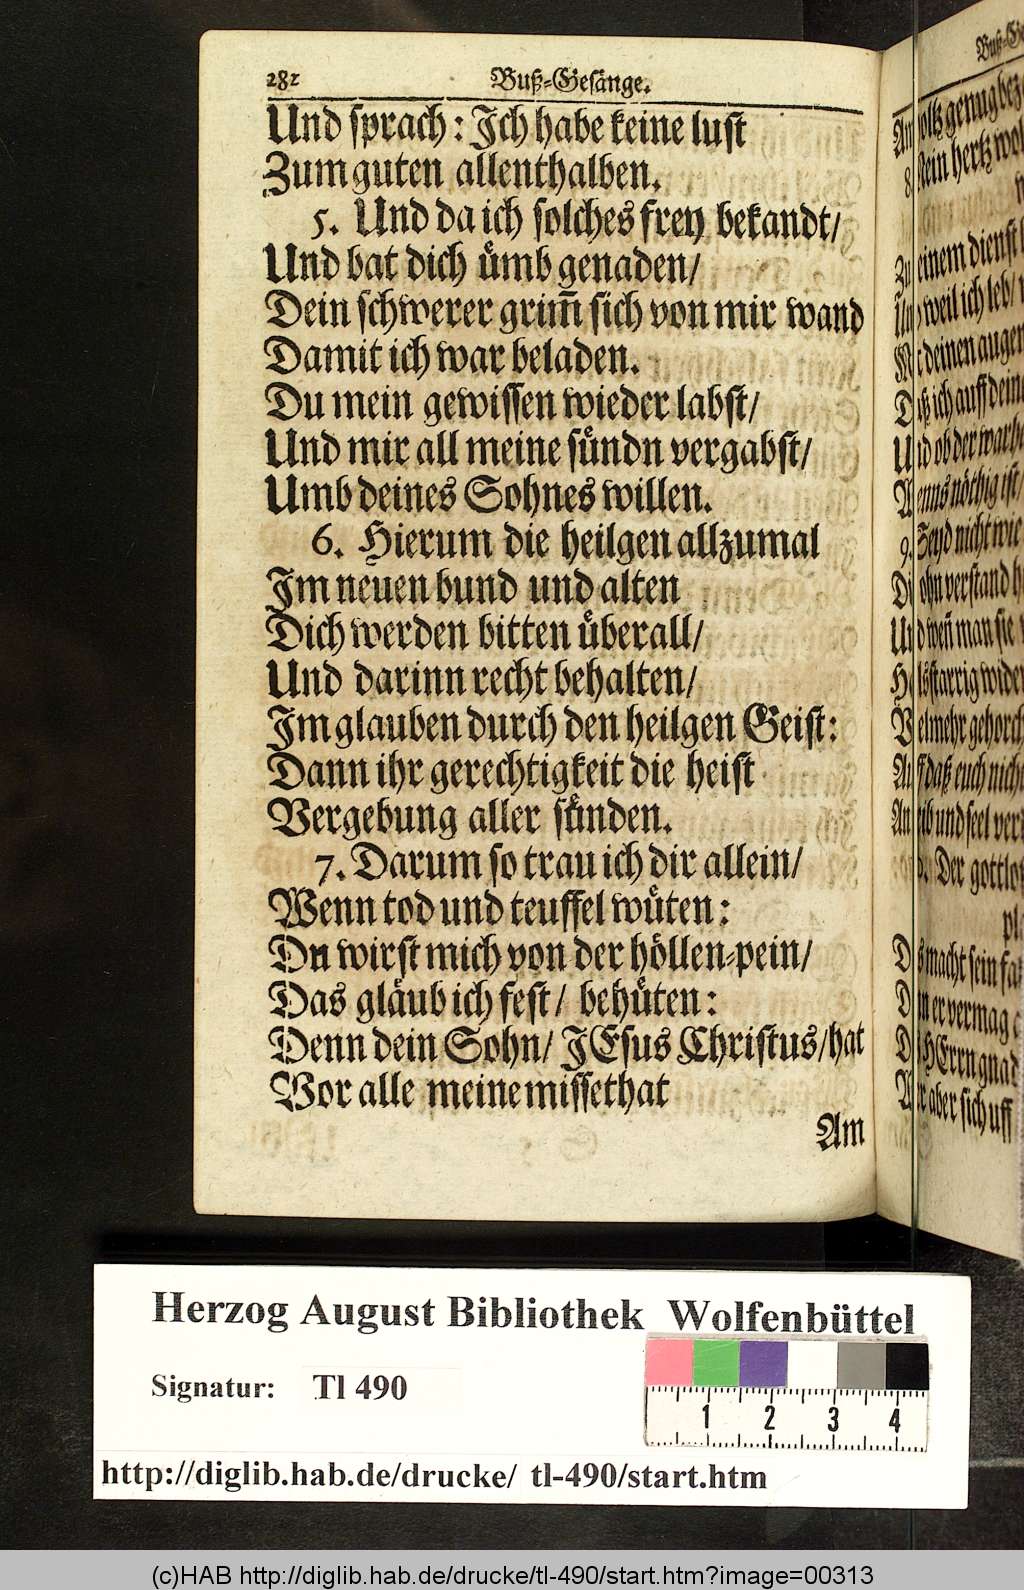 282 Buß-Gesänge.
Und sprach: Ich habe keine lust
Zum guten allenthalben.
5. Und da ich solches frey bekandt/
Und bat dich ümb genaden/
Dein schwerer grim̃ sich von mir wand
Damit ich war beladen.
Du mein gewissen wieder labst/
Und mir all meine sündn vergabst/
Umb deines Sohnes willen.
6. Hierum die heilgen allzumal
Im neuen bund und alten
Dich werden bitten überall/
Und darinn recht behalten/
Im glauben durch den heilgen Geist:
Dann ihr gerechtigkeit die heist
Vergebung aller sünden.
7. Darum so trau ich dir allein/
Wenn tod und teuffel wüten:
Dn wirst mich von der höllen-pein/
Das gläub ich fest/ behüten:
Denn dein Sohn/ JEsus Christus/hat
Vor alle meine missethat
Am
genug
hertz
einem dienst
weil ich leb/
deinen augen
ich auff
ob der
nöthig ist/
9. Seyd nicht wie
ohn verstand
weñ man sie
daß euch nicht
und seel
Der
macht sein
er vermag
HErrn gnad
aber sich uff
Herzog August Bibliothek Wolfenbüttel
Signatur: Tl 490
1 2 3 4
http://diglib.hab.de/drucke/ tl-490/start.htm
(c)HAB http://diglib.hab.de/drucke/tl-490/start.htm?image=00313